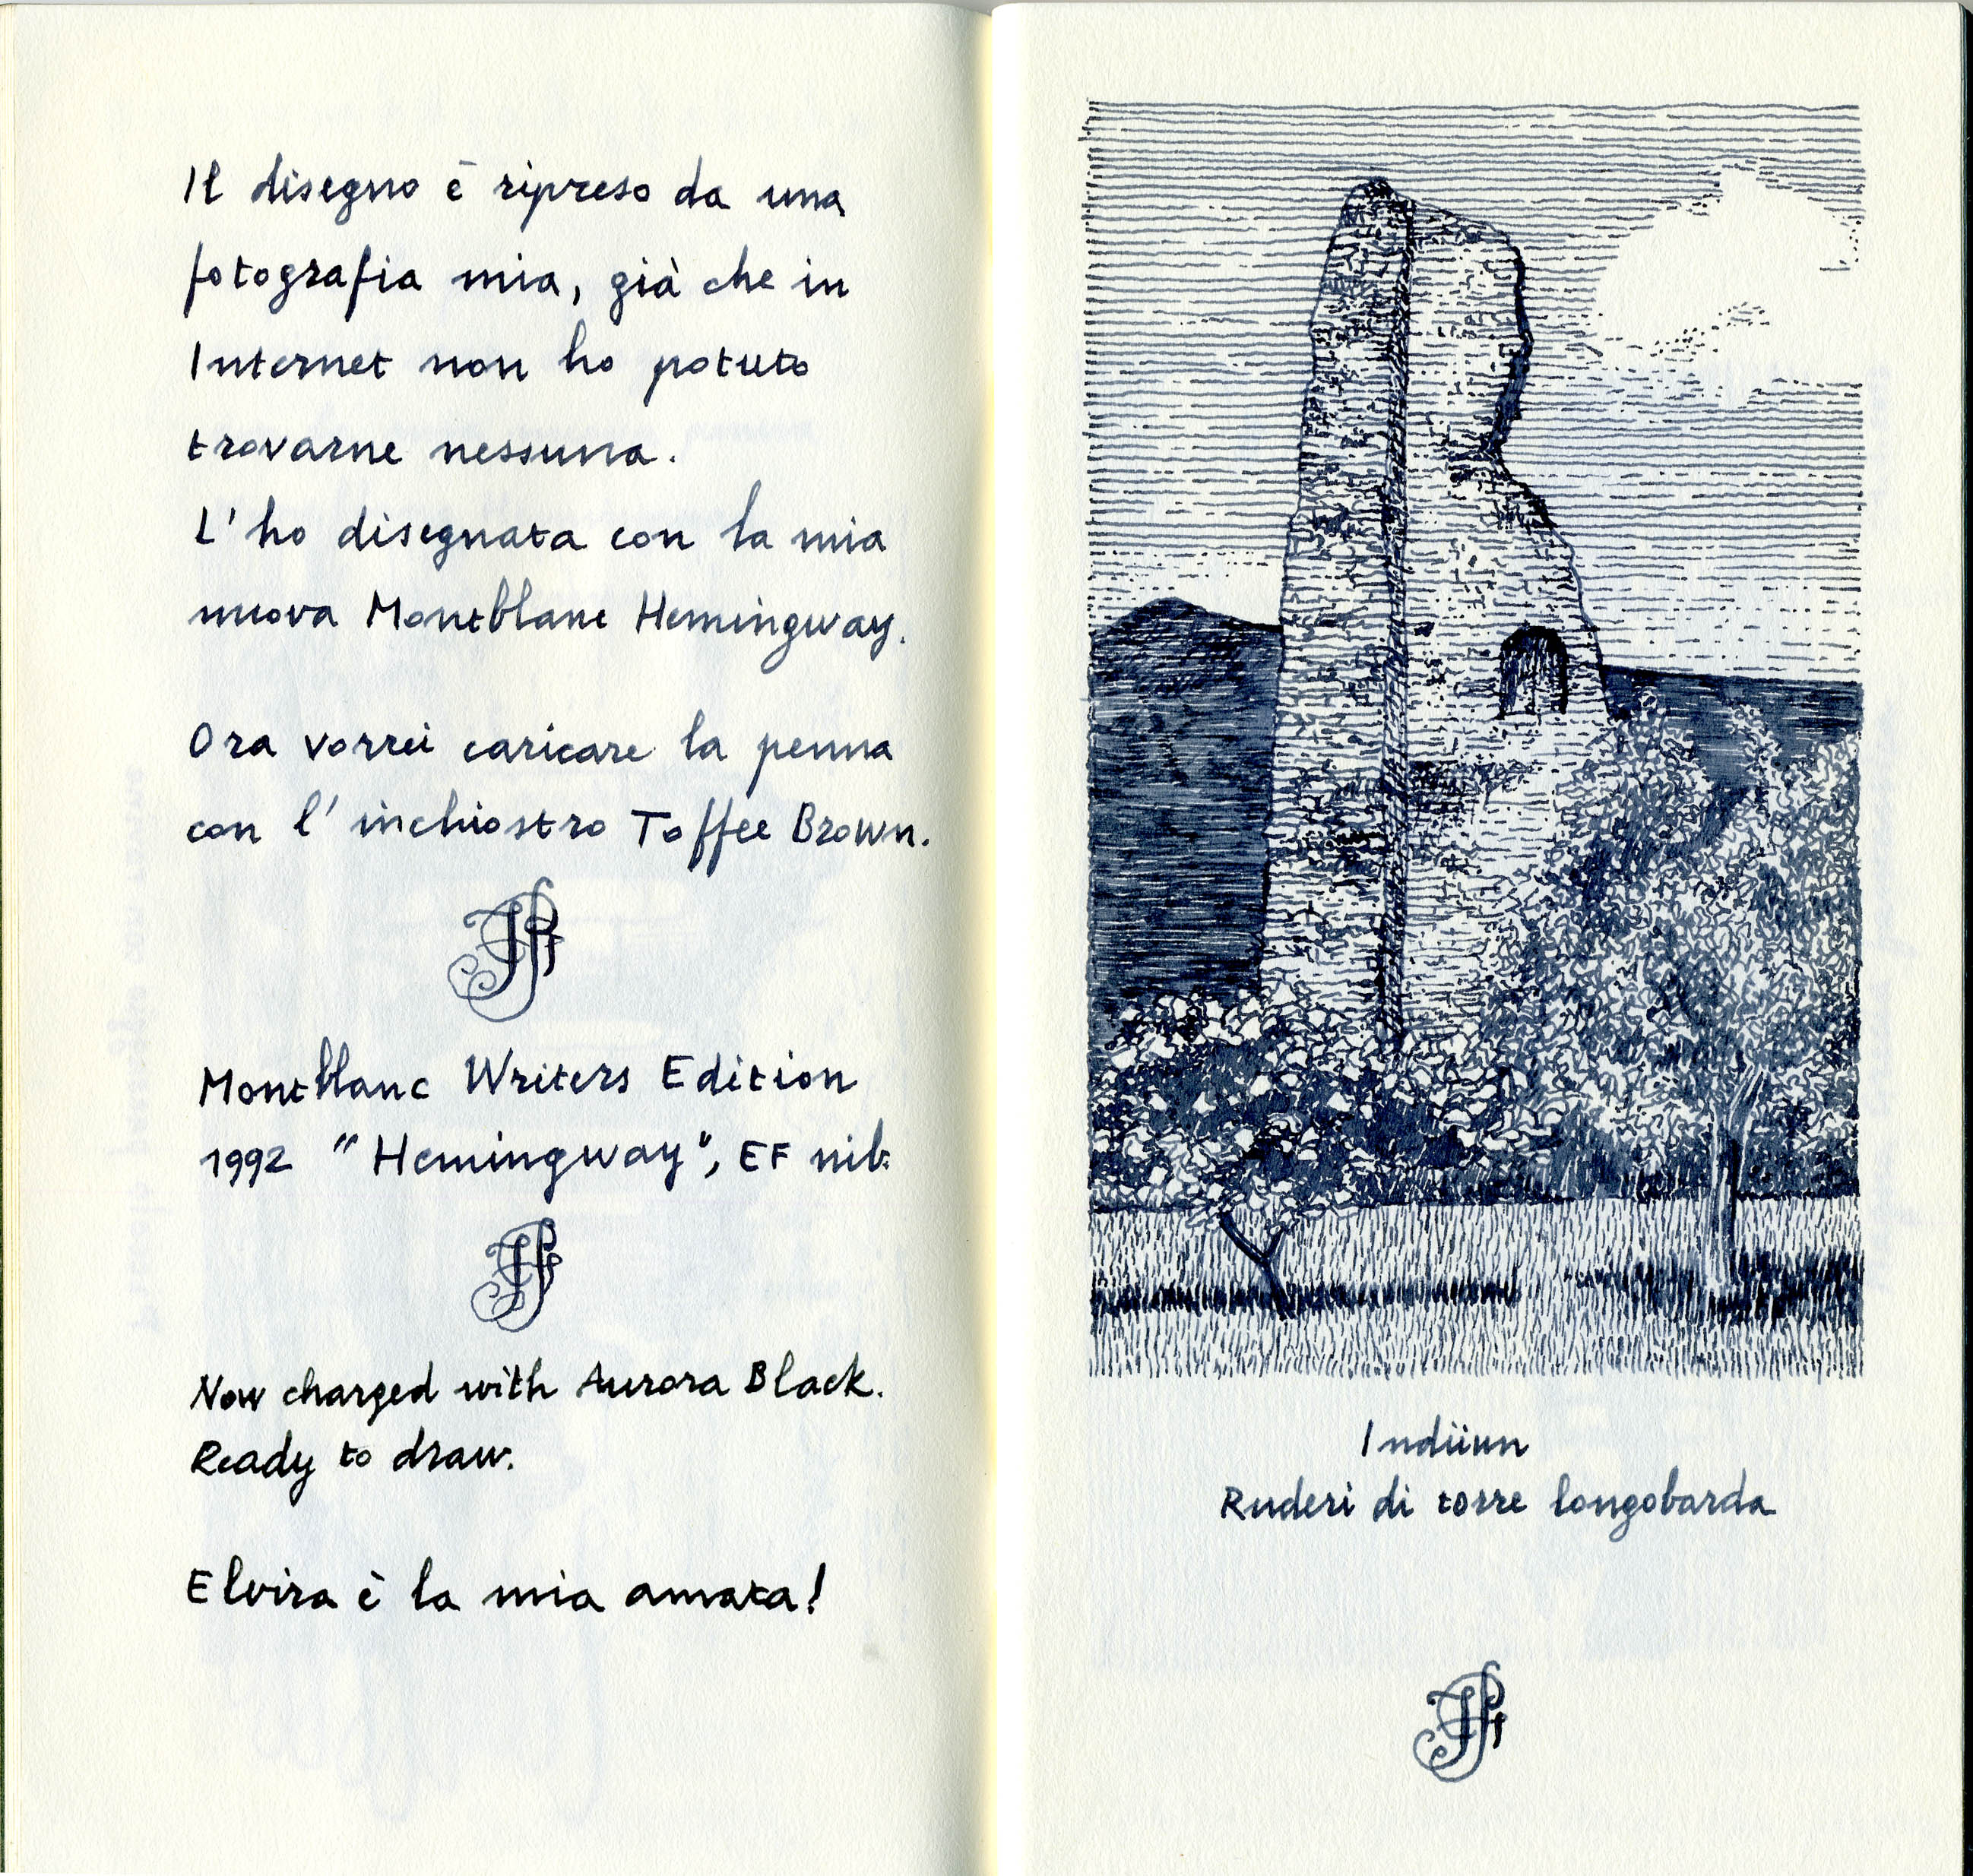 Il disegno è ripreso da una
fotografia mia, già che in
Internet non ho potuto
trovarne nessuna.
L'ho disegnata con la mia
nuova Montblanc Hemingway.
Ora vorrei caricare la penna
con l'inchiostro Toffee Brown.
Montblanc Writers Edition
1992 "Hemingway", EF nib.
Now charged with Aurora Black.
Ready to draw.
Elvira è la mia amata!
Ruderi di torre longobarda